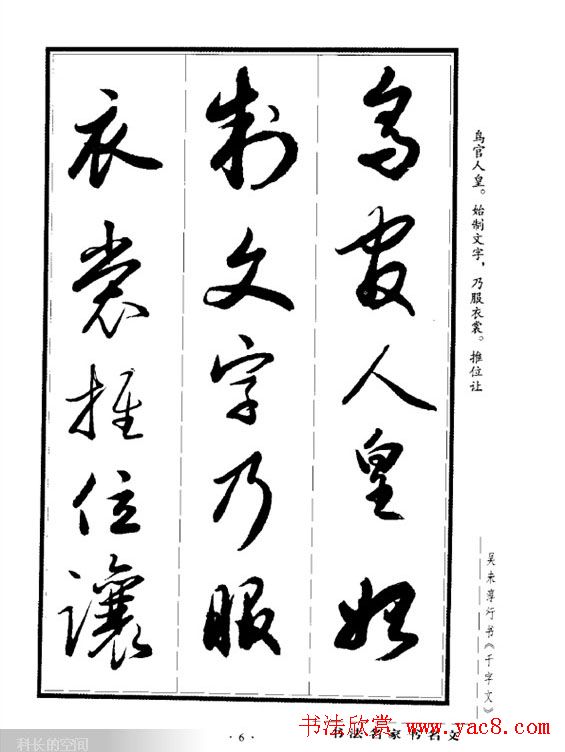 鸟官人皇始
制文字乃服
衣裳推位讓
鸟官人皇。始制文字，乃服衣裳。推位让
吴未淳行书《千字文》
·6·
书法名家书名文
书法欣赏 www.yac8.com
科长的空间